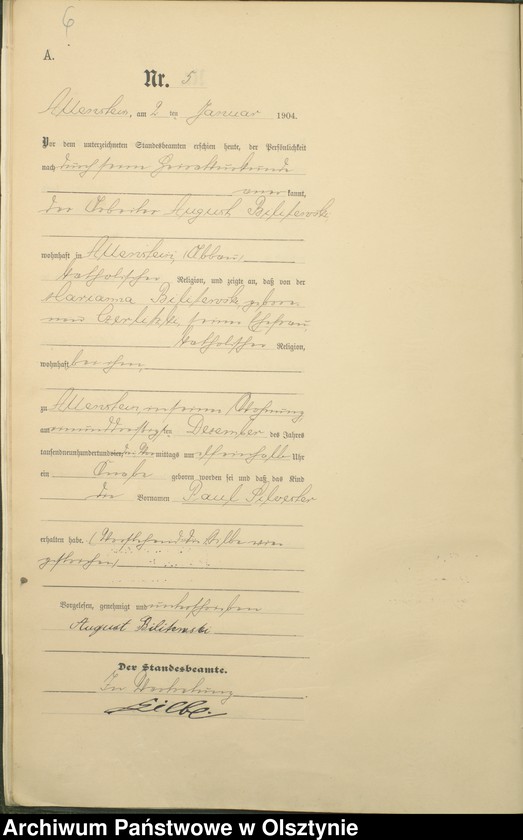 6
A.
Nr. 5
Allenstein, am 2 ten Januar 1904.
Vor dem unterzeichneten Standesbeamten erschien heute, der Persönlichkeit
nach durch seine Heiratsurkunde
aner kannt,
der Arbeiter August Bilitewski
wohnhaft in Allenstein, Abbau,
katholischer Religion, und zeigte an, daß von der
Marianna Bilitewski, gebore-
nen Gerlitzki, seiner Ehefrau,
katholischer Religion,
wohnhaft bei ihm,
zu Allenstein in seiner Wohnung
am einunddreißigsten Dezember des Jahres
tausendneunhundertunddrei Vormittags um elfeinhalb Uhr
ein Knabe geboren worden sei und daß das Kind
die Vornamen Paul Silvester
erhalten habe. (Vorstehend
gestrichen)
Vorgelesen, genehmigt und unterschrieben
August Bilitewski
Der Standesbeamte.
In Vertretung
Archiwum Państwowe w Olsztynie